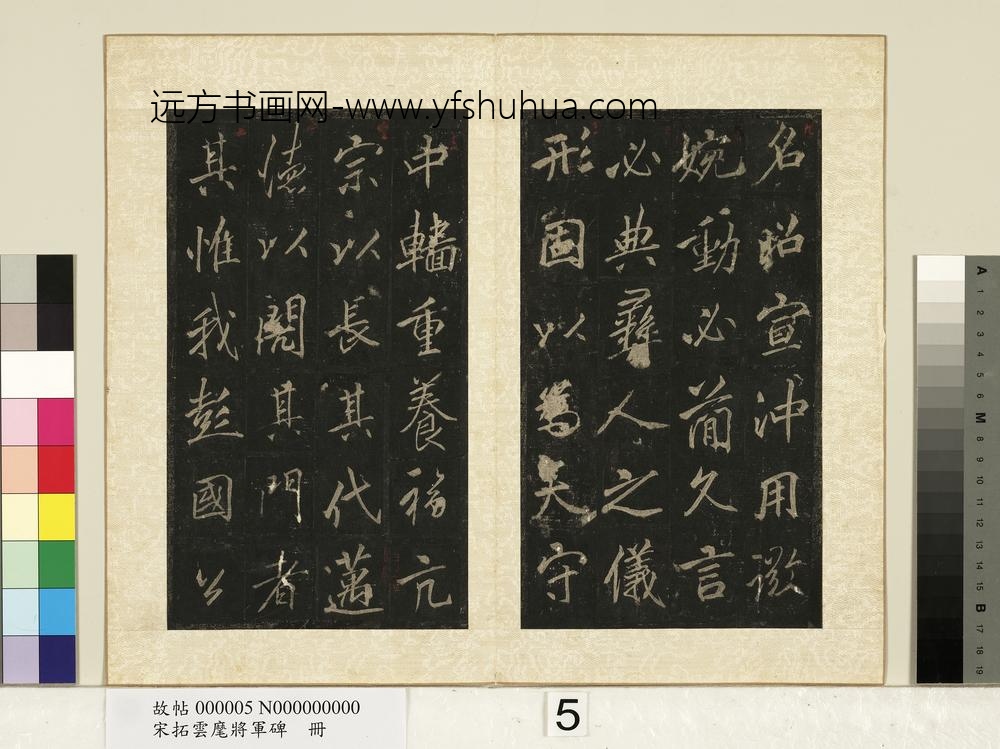 远方书画网-www.yfshuhua.com
名昭宣沖用微
婉動必簡久言
必典彝人之儀
形固以為矣守
中轖重養福亢
宗以長其代邁
德以閎其門者
其惟我彭國公
故帖 000005 N000000000
宋拓雲麾將軍碑 冊
5
A
1
2
3
4
5
6
M
8
9
10
11
12
13
14
15
B
17
18
19